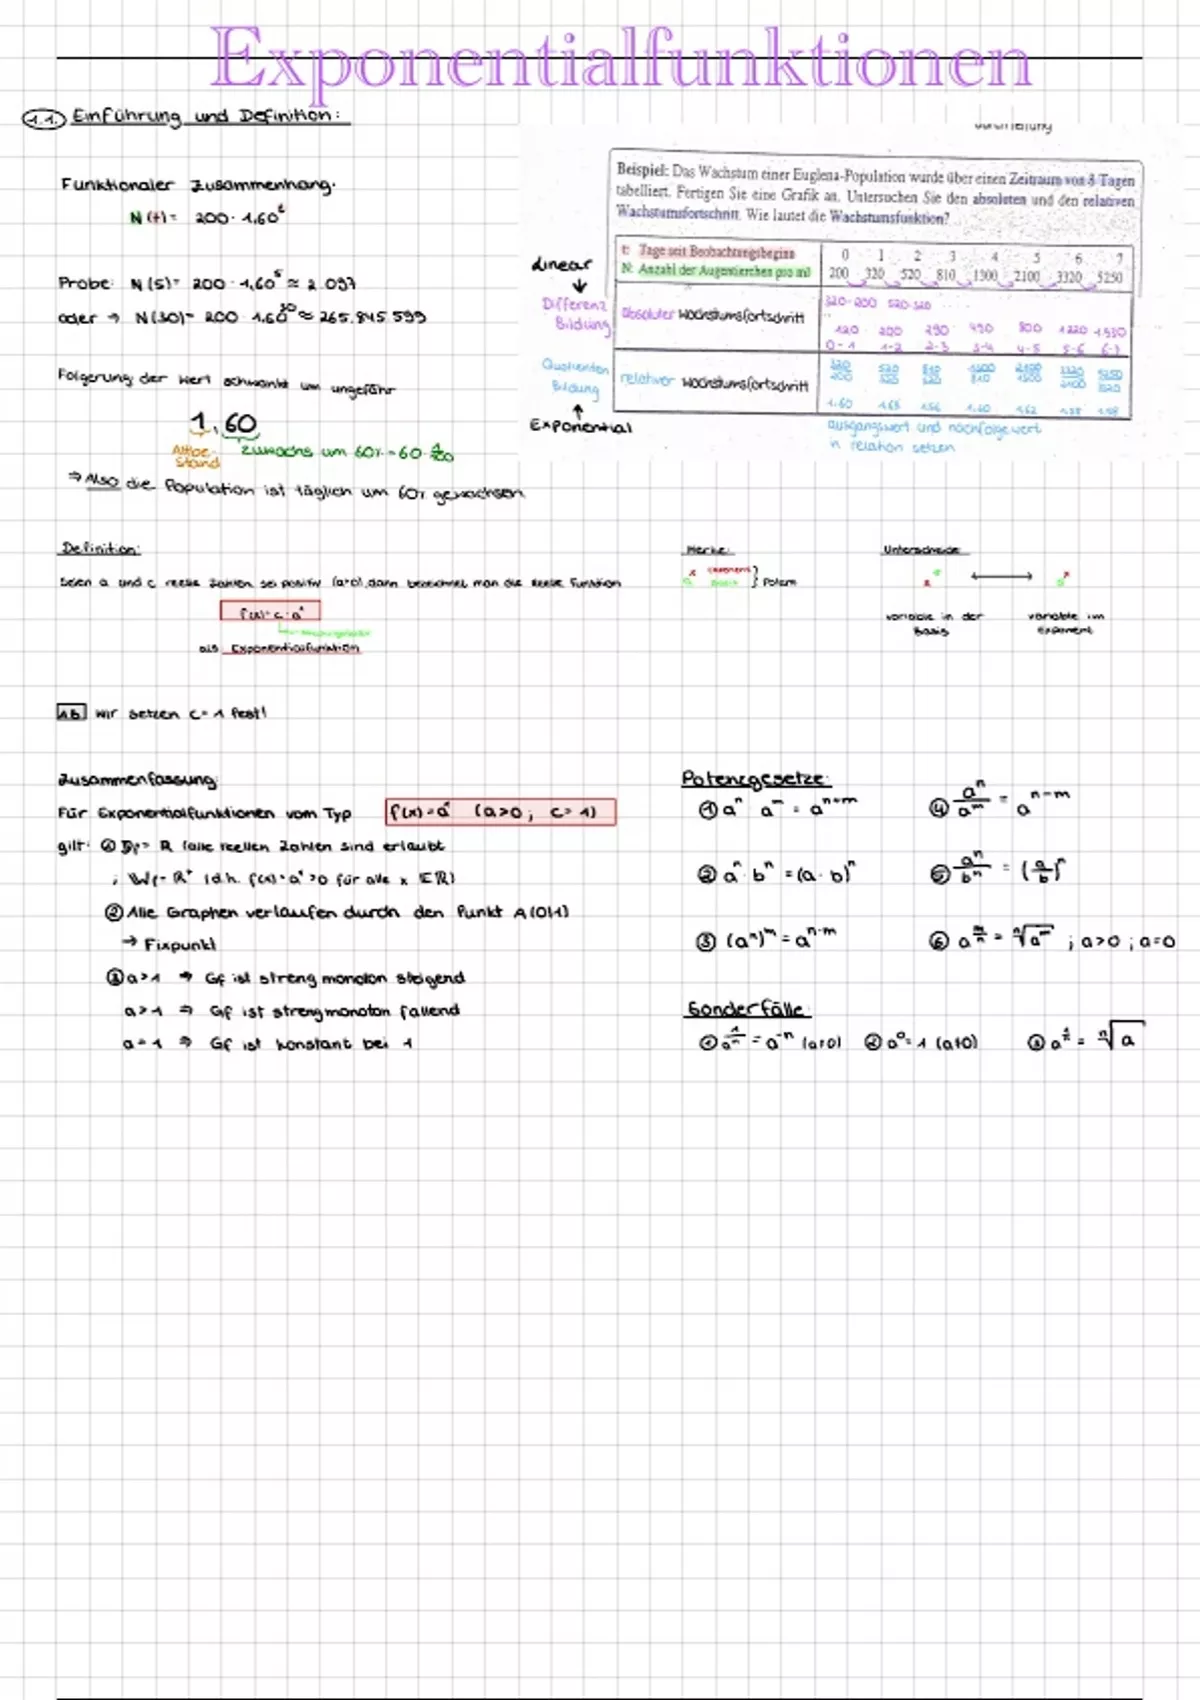 Exponentialfunktionen
1.1. Einführung und Definition:
Funktionaler Zusammenhang.
N(t) = 200 · 1,60^t
Probe: N(5) = 200 · 1,60^5 ≈ 2.097
oder → N(30) = 200 · 1.60^30 ≈ 265.845.599
Folgerung: der Wert schwankt um ungefähr
1,60
Altbe-
stand
Zuwachs um 60% = 60 ·
⇒ Also die Population ist täglich um 60% gewachsen
Beispiel: Das Wachstum einer Euglena-Population wurde über einen Zeitraum von 8 Tagen
tabelliert. Fertigen Sie eine Grafik an. Untersuchen Sie den absoluten und den relativen
Wachstumsfortschritt. Wie lautet die Wachstumsfunktion?
t: Tage seit Beobachtungsbeginn 0 1 2 3 4 5 6 7
N: Anzahl der Augentierchen pro ml 200 320 520 810 1300 2100 3320 5250
Linear
↓
Differenz
Bildung
absoluter Wachstumsfortschritt
320-200 520-320
120 200 290 490 800 1220 1930
0-1 1-2 2-3 3-4 4-5 5-6 6-7
Quotienten
Bildung
↑
Exponential
relativer Wachstumsfortschritt
1.60 1.63 1.56 1.60 1.62 1.58 1.58
ausgangswert und nachfolgewert
in relation setzen
Definition:
Seien a und c reelle Zahlen, sei positiv (a>0), dann bezeichnet man die reelle Funktion
f(x) = c · a^x
als Exponentialfunktion
Merke:
x Exponent
a Basis } Potenz
Unterscheide
variable in der
Basis
variable im
Exponent
1.b wir setzen c = 1 fest!
Zusammenfassung:
Für Exponentialfunktionen vom Typ f(x) = a^x (a>0; c=1)
gilt: ① Df = R (alle reellen Zahlen sind erlaubt
; Wf = R⁺ (d.h. f(x) = a^x >0 für alle x ∈ R)
② Alle Graphen verlaufen durch den Punkt A(0|1)
→ Fixpunkt
③ a>1 ⇒ Gf ist streng monoton steigend
a>1 ⇒ Gf ist streng monoton fallend
a=1 ⇒ Gf ist konstant bei 1
Potenzgesetze:
① a^n · a^m = a^(n+m) ④ a^n/a^m = a^(n-m)
② a^n · b^n = (a · b)^n ⑤ a^n/b^n = (a/b)^n
③ (a^n)^m = a^(n·m) ⑥ a^(m/n) = ⁿ√a^m ; a>0 ; a=0
Sonderfälle:
① 1/a^n = a^-n (a≠0) ② a^0 = 1 (a≠0) ③ a^(1/n) = ⁿ√a